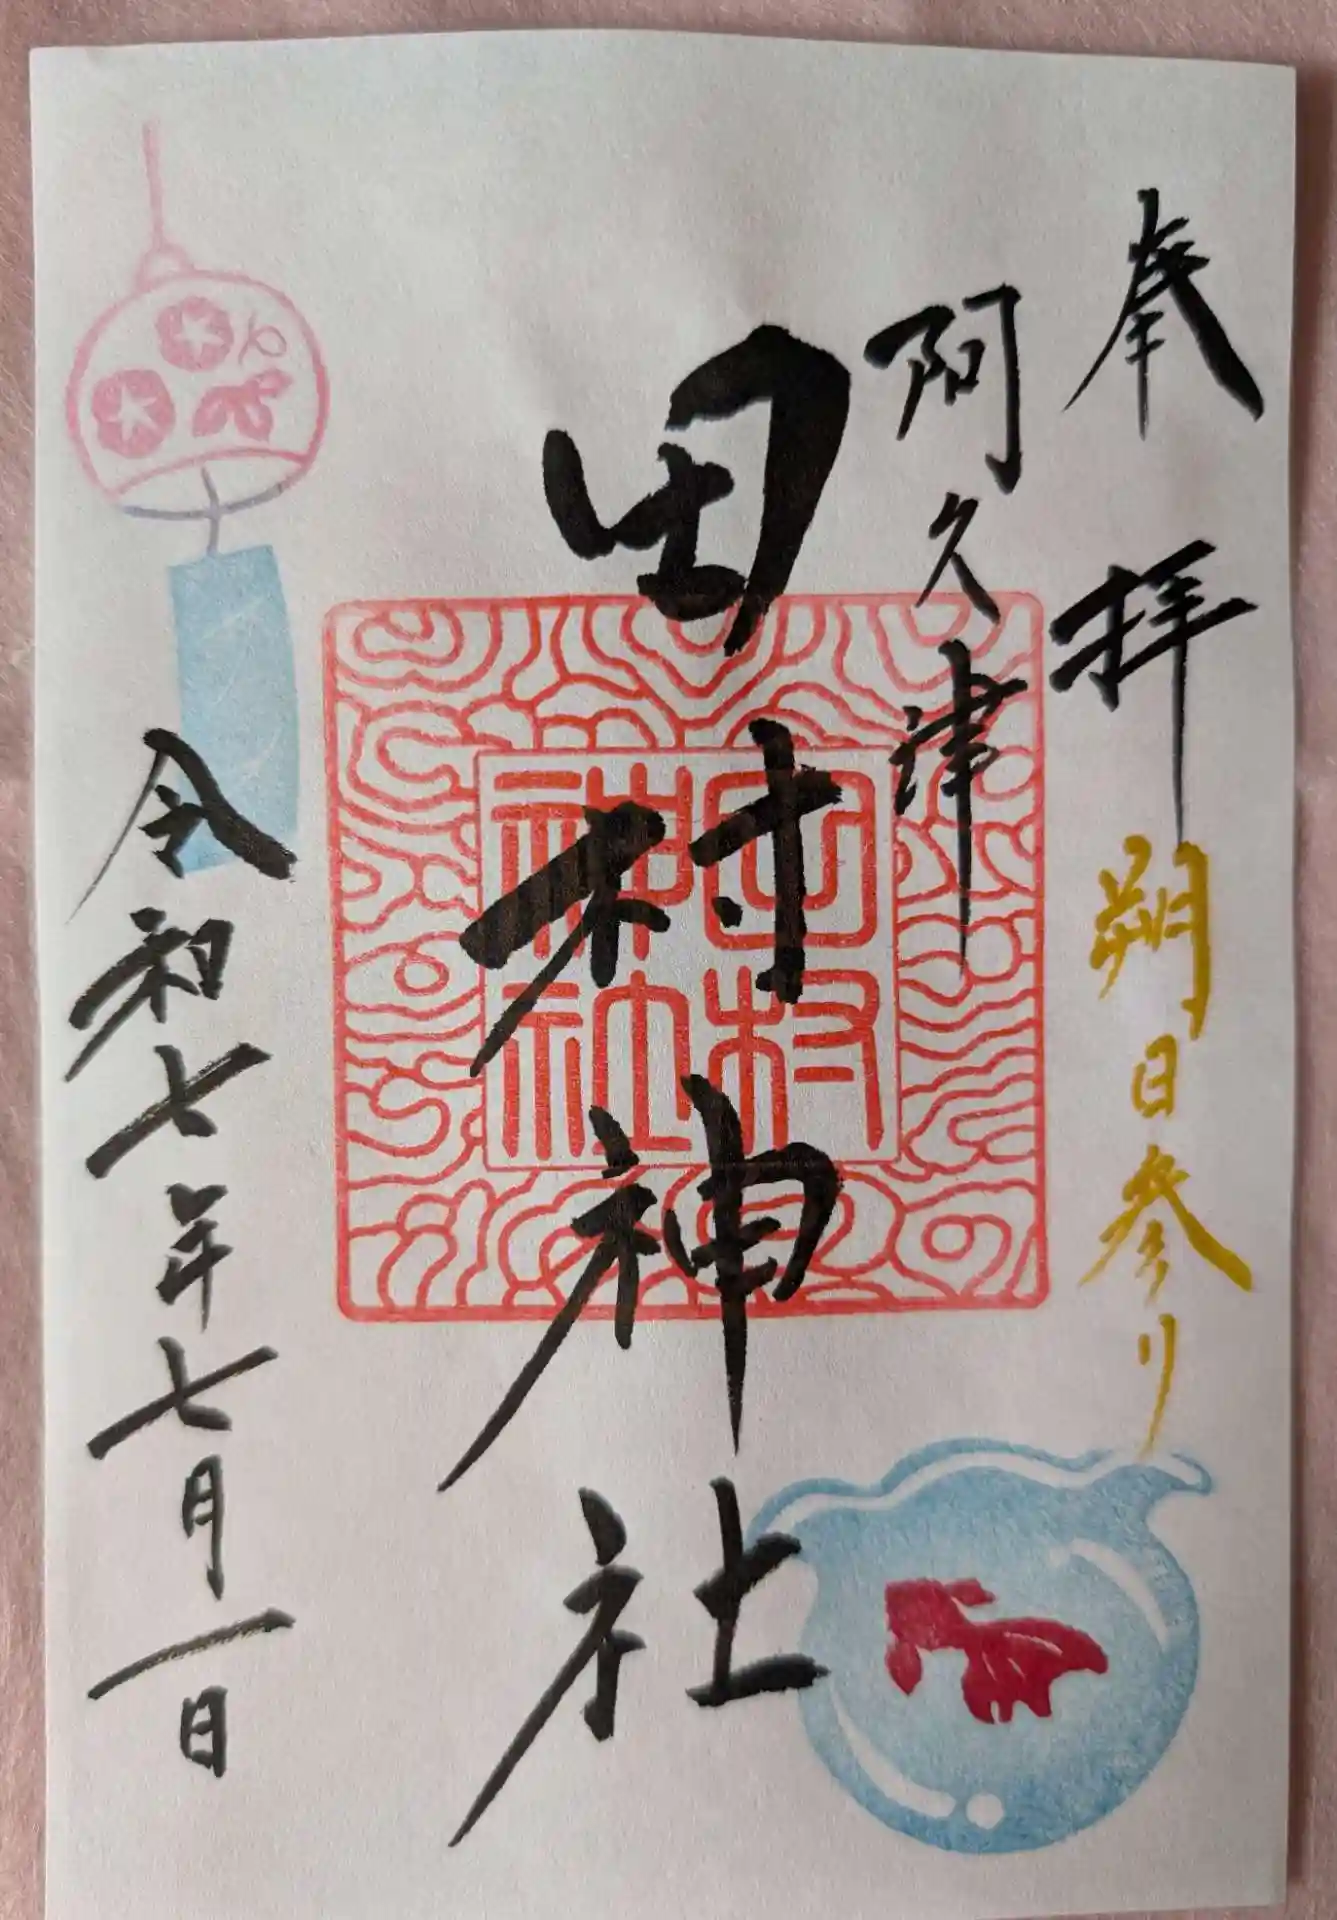 奉拝
朔日参り
阿久津
田村神社
田村神社
令和七年七月一日